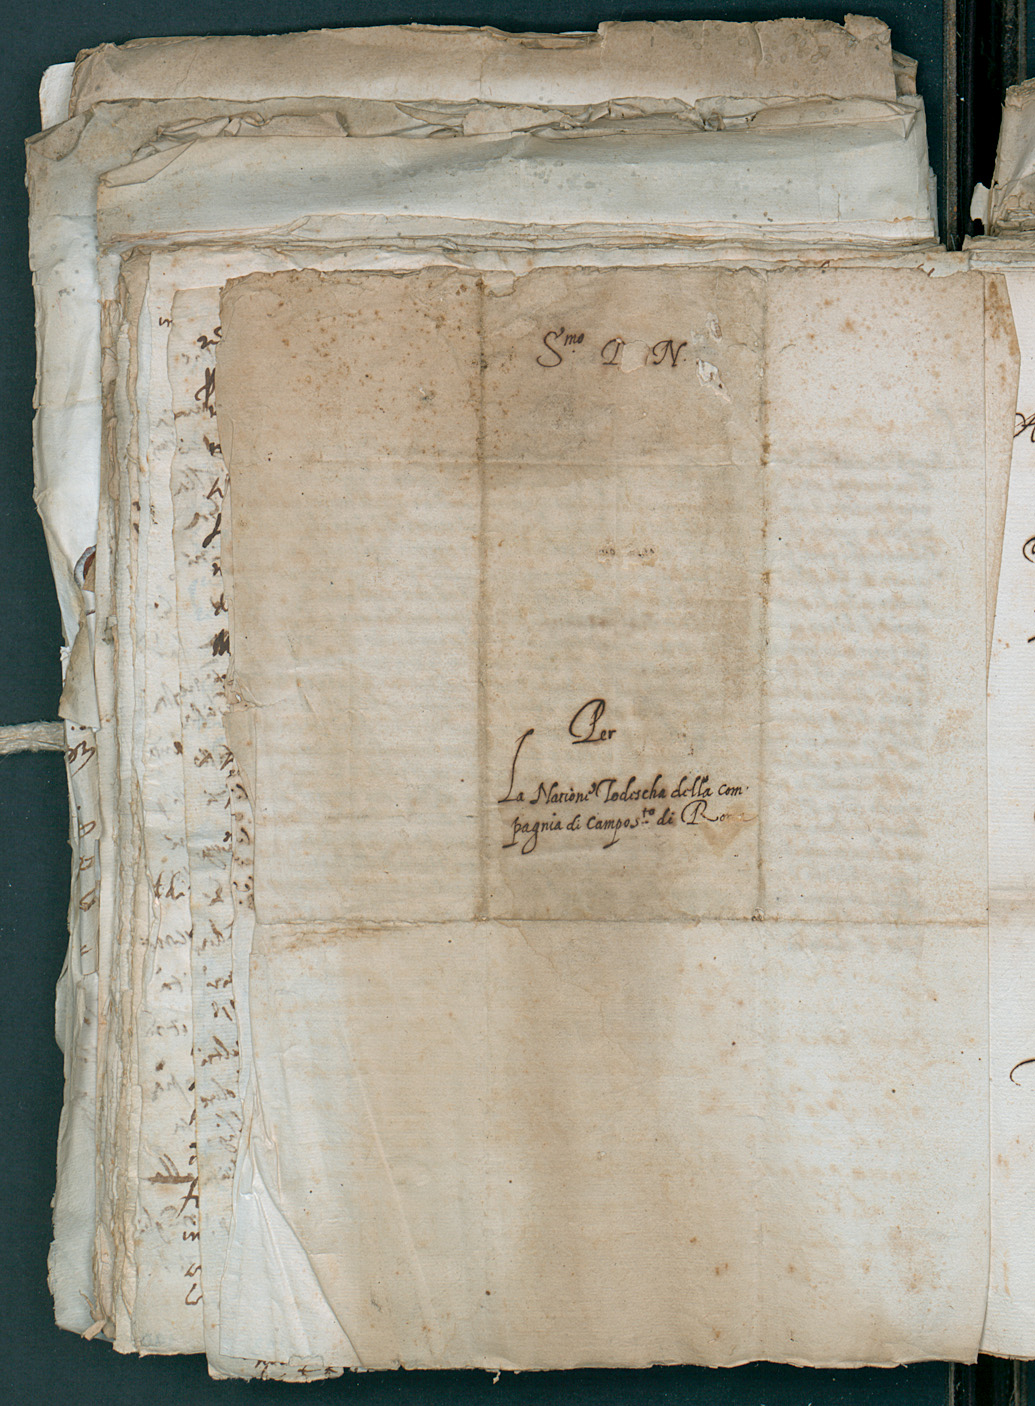 S.mo D N.
Per
La Natione Todescha della com-
pagnia di Campos.to di Roma